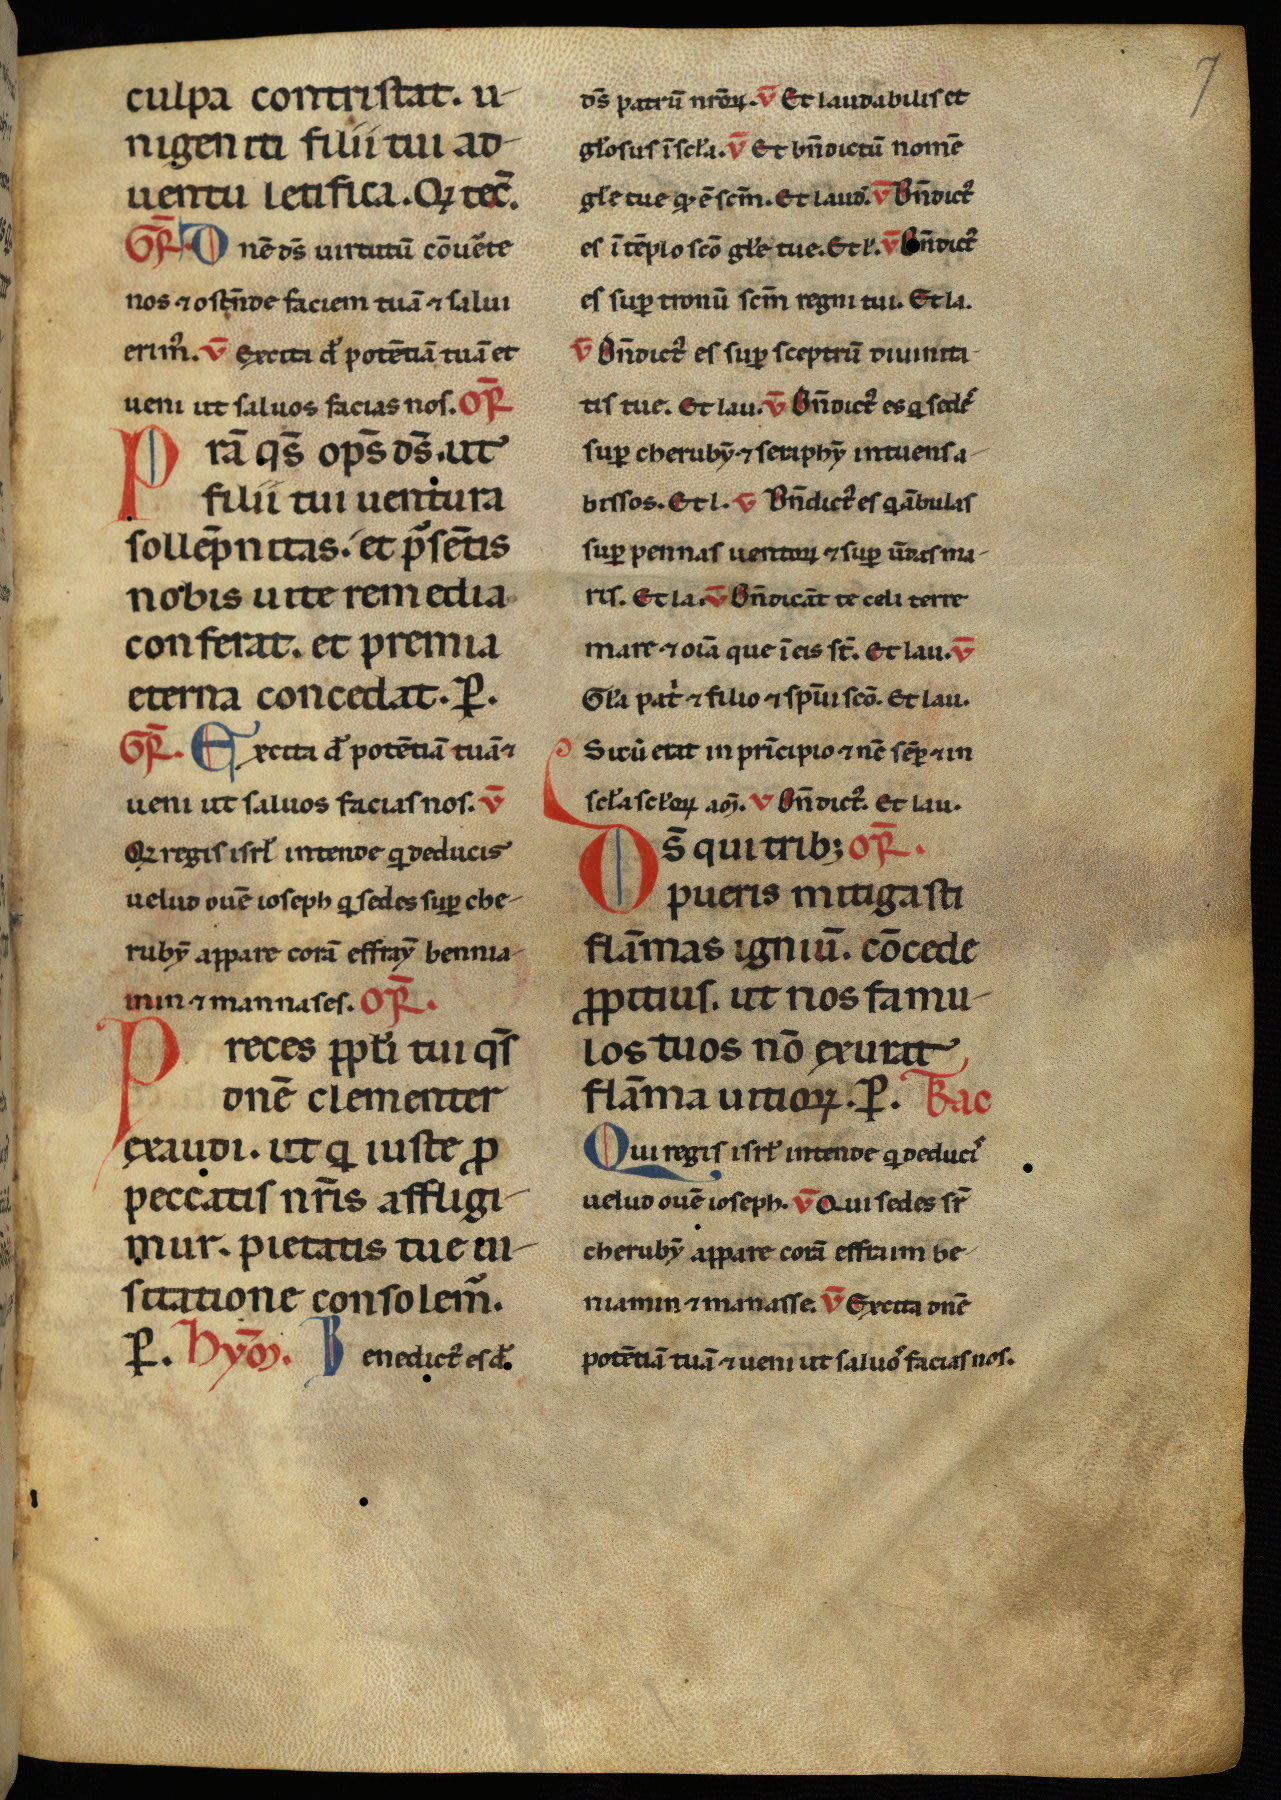 7
culpa contristat. u-
nigeniti filii tui ad-
uentu letifica. Qꝛ tec̄.
GR̄. Dn̄e ds̄ uirtutū cōu̾te
nos ⁊ ostn̄de faciem tuā ⁊ salui
erim᷒. v̄ Excita d̾ potētiā tuā et
ueni ut saluos facias nos. OR̄
Prā qs̄ op̄s ds̄. ut
filii tui uentura
sollēpnitas. et p̾sētis
nobis uite remedia
conferat. et premia
eterna concedat. P̱.
GR̄. Excita d̾ potētiā tuā ⁊
ueni ut saluos facias nos. v̄
Qꝛ regis isrł intende q deducis
uelud ouē ioseph q sedes sup̱ che-
rubȳ appare corā effraȳ bennia-
min ⁊ mannases. OR̄.
Preces ꝓpłi tui qs̄
dn̄ē clementer
exaudi. ut q iuste ꝓ
peccatis nr̄is affligi-
mur. pietatis tue ui-
sitatione consolem᷒.
P̱. Hym̄. Benedict᷒ es d̾.
ds̄ patrū nrōꝝ. v̄ Et laudabilis et
gł̄osus ī scł̄a. v̄ Et bn̄dictū nomē
gł̄e tue q̇ ē scm̄. Et laud̾. v̄ Bn̄dict᷒
es ī tēplo scō gł̄e tue. Et ł. v̄ Bn̄dict᷒
es sup̱ tronū scm̄ regni tui. Et la.
v̄ Bn̄dict᷒ es sup̱ sceptrū diuinita-
tis tue. Et lau. v̄ Bn̄dict᷒ es q sedē
sup̱ cherubȳ ⁊ seraphȳ intuens a-
bissos. Et l. v̄ Bn̄dict᷒ es q ābulas
sup̱ pennas uentoꝝ ⁊ sup̱ ūdas ma-
ris. Et la. v̄ Bn̄dicāt te celi terre
mare ⁊ oīa que ī eis st̄. Et lau. v̄
Gł̄a pat̾ ⁊ filio ⁊ sp̄ui scō. Et lau.
Sicut̄ erat in prīcipio ⁊ nc̄ sēp̱ ⁊ in
scł̄a scł̄oꝝ am̄. v Bn̄dict᷒. Et lau.
Ds̄ qui trib; OR̄.
pueris mitigasti
flāmas igniū. cōcede
ꝓpitius. ut nos famu-
los tuos nō exurat
flāma uitioꝝ. P̱. Trac
Qui regis isrł intende q deduci᷒
uelud ouē ioseph. v̄ Qui sedes sr̄
cherubȳ appare corā effraim be-
niamin ⁊ manasse. v̄ Excita dn̄e
potētiā tuā ⁊ ueni ut saluo᷒ facias nos.